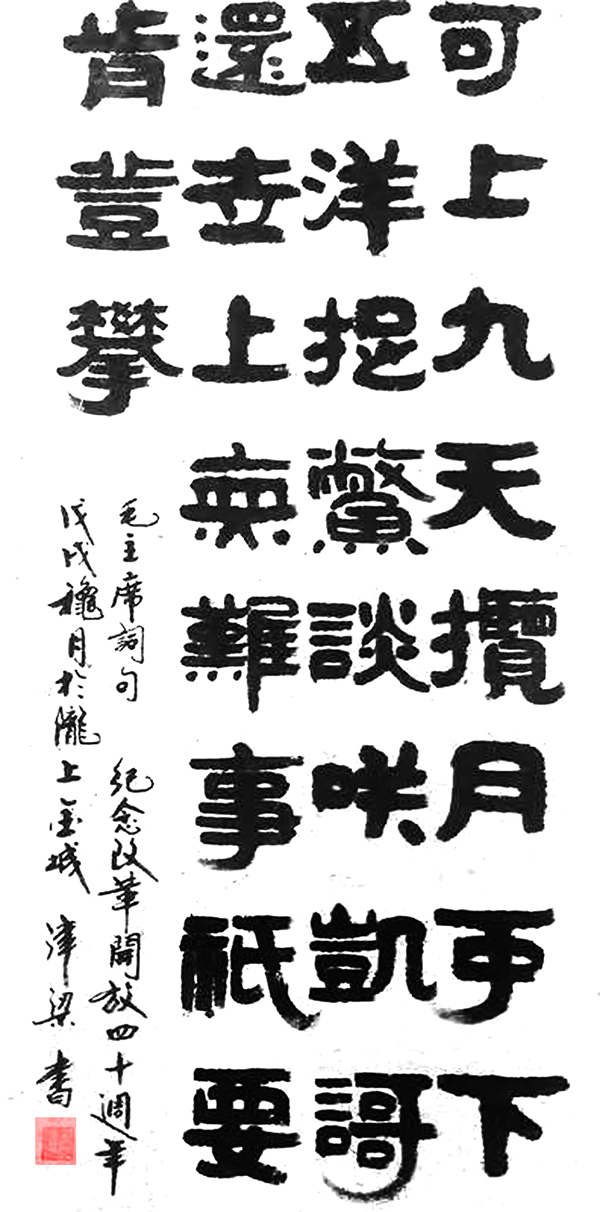 可上九天攬月可下
五洋捉鱉談咲凱謌
還世上無難事祇要
肯登攀
毛主席詞句 紀念改革開放四十週年
戊戌龝月於隴上金城 津梁書